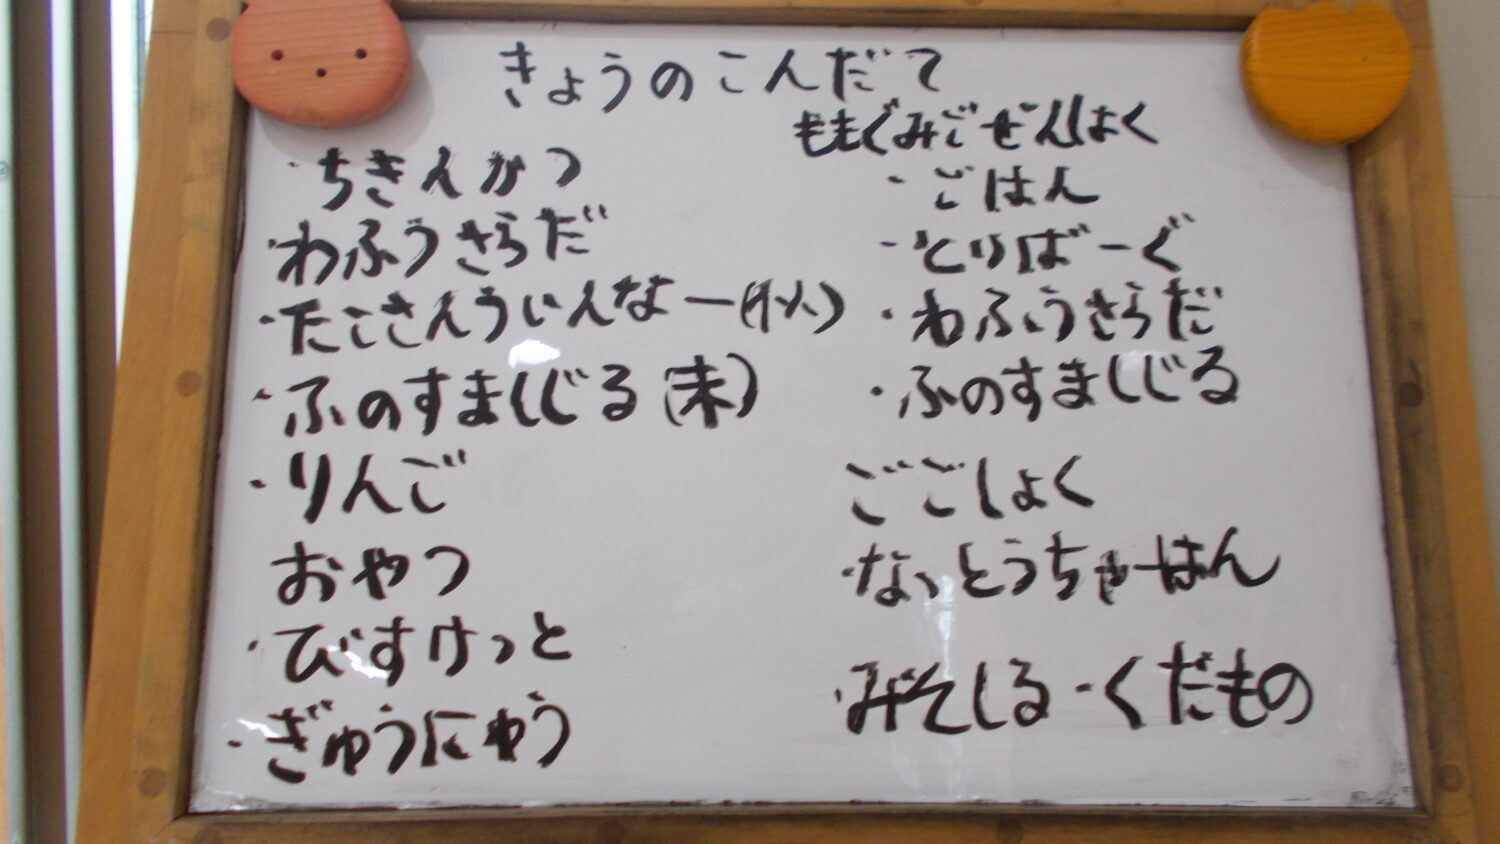 きょうのこんだて
・ちきんかつ
・わふうさらだ
・たこさんういんなー
・ふのすましじる(未)
・りんご
おやつ
・びすけっと
・ぎゅうにゅう
ももぐみごぜんしょく
・ごはん
・とりばーぐ
・わふうさらだ
・ふのすましじる
ごごしょく
・なっとうちゃーはん
・みそしる・くだもの